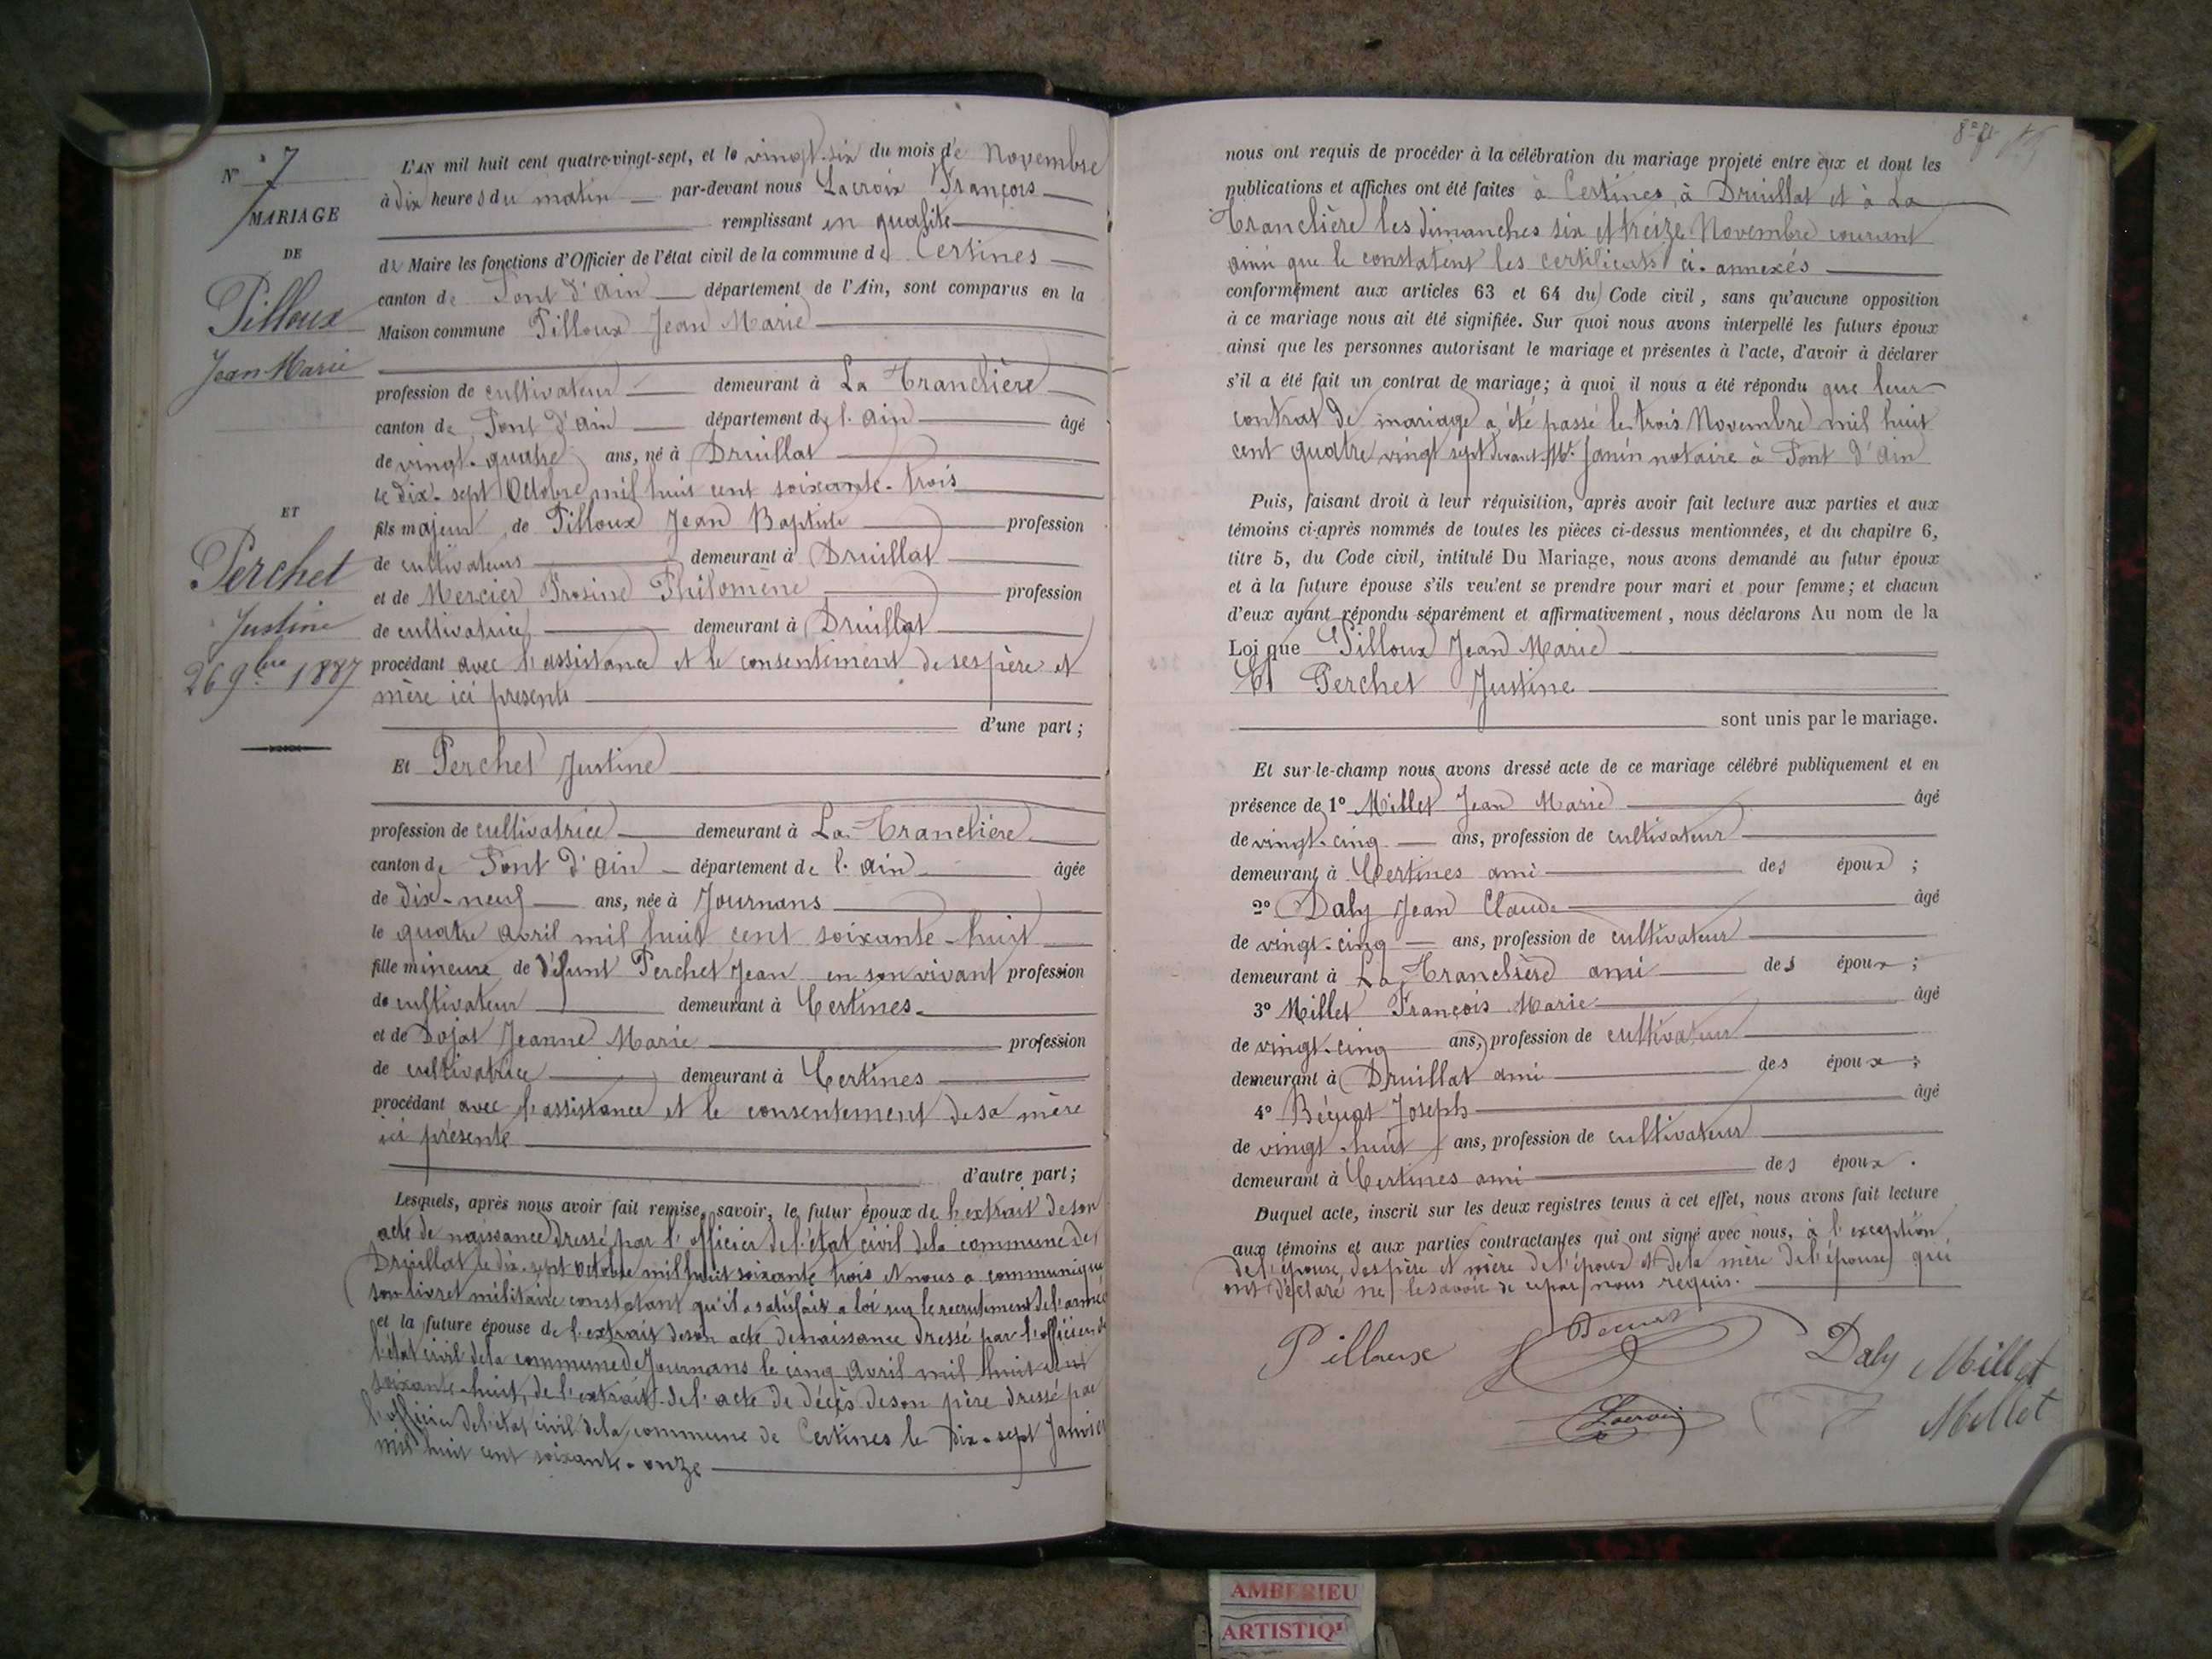 N° 7
MARIAGE
DE
Pilloux
Jean-Marie
ET
Perchet
Justine
26 9bre 1887
L'AN mil huit cent quatre-vingt-sept, et le vingt-six du mois de Novembre
à dix heures du matin par-devant nous Lacroix François
remplissant en qualité
de Maire les fonctions d'Officier de l'état civil de la commune de Certines
canton de Pont d'Ain département de l'Ain, sont comparus en la
Maison commune Pilloux Jean Marie
profession de cultivateur demeurant à La Tranclière
canton de Pont d'Ain département de l'Ain âgé
de vingt-quatre ans, né à Druillat
le dix-sept Octobre mil huit cent soixante-trois
fils majeur de Pilloux Jean Baptiste profession
de cultivateurs demeurant à Druillat
et de Mercier Frosine Philomène profession
de cultivatrice demeurant à Druillat
procédant avec l'assistance et le consentement de ses père et
mère ici présents
d'une part;
Et Perchet Justine
profession de cultivatrice demeurant à La Tranclière
canton de Pont d'Ain département de l'Ain âgée
de dix-neuf ans, née à Journans
le quatre avril mil huit cent soixante-huit
fille mineure de défunt Perchet Jean en son vivant profession
de cultivateur demeurant à Certines
et de Dojat Jeanne Marie profession
de cultivatrice demeurant à Certines
procédant avec l'assistance et le consentement de sa mère
ici présente
d'autre part;
Lesquels, après nous avoir fait remise, savoir, le futur époux de l'extrait de son
acte de naissance dressé par l'officier de l'état civil de la commune de
Druillat le dix-sept octobre mil huit soixante trois et nous a communiqué
son livret militaire constatant qu'il a satisfait a loi sur le recrutement de l'armée
et la future épouse de l'extrait de son acte de naissance dressé par l'officier de
l'état civil de la commune de Journans le cinq avril mil huit cent
soixante-huit, de l'extrait de l'acte de décès de son père dressé par
l'officier de l'état civil de la commune de Certines le dix-sept Janvier
mil huit cent soixante-onze
nous ont requis de procéder à la célébration du mariage projeté entre eux et dont les
publications et affiches ont été faites à Certines, à Druillat et à La
Tranclière les dimanches six et treize Novembre courant
ainsi que le constatent les certificats ci-annexés
conformément aux articles 63 et 64 du Code civil, sans qu'aucune opposition
à ce mariage nous ait été signifiée. Sur quoi nous avons interpellé les futurs époux
ainsi que les personnes autorisant le mariage et présentes à l'acte, d'avoir à déclarer
s'il a été fait un contrat de mariage; à quoi il nous a été répondu que leur
contrat de mariage a été passé le trois Novembre mil huit
cent quatre vingt sept devant Me Janin notaire à Pont d'Ain
Puis, faisant droit à leur réquisition, après avoir fait lecture aux parties et aux
témoins ci-après nommés de toutes les pièces ci-dessus mentionnées, et du chapitre 6,
titre 5, du Code civil, intitulé Du Mariage, nous avons demandé au futur époux
et à la future épouse s'ils veulent se prendre pour mari et pour femme; et chacun
d'eux ayant répondu séparément et affirmativement, nous déclarons Au nom de la
Loi que Pilloux Jean Marie
Et Perchet Justine
sont unis par le mariage.
Et sur-le-champ nous avons dressé acte de ce mariage célébré publiquement et en
présence de 1° Millet Jean Marie âgé
de vingt-cinq ans, profession de cultivateur
demeurant à Certines ami des époux;
2° Daly Jean Claude âgé
de vingt-cinq ans, profession de cultivateur
demeurant à La Tranclière ami des époux;
3° Millet François Marie âgé
de vingt-cinq ans, profession de cultivateur
demeurant à Druillat ami des époux;
4° Bécuat Joseph âgé
de vingt-huit ans, profession de cultivateur
demeurant à Certines ami des époux.
Duquel acte, inscrit sur les deux registres tenus à cet effet, nous avons fait lecture
aux témoins et aux parties contractantes qui ont signé avec nous, à l'exception
de l'épouse, des père et mère de l'époux et de la mère de l'épouse qui
ont déclaré ne le savoir de ce par nous requis.
Pilloux Daly Millet
Lacroix Millet
AMBERIEU
ARTISTIQ